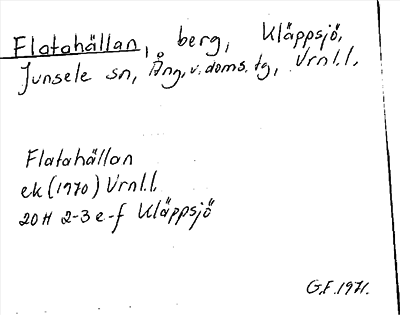 Flatahällan, berg, Kläppsjö,
Junsele sn, Ång. v. doms. tg, Vrnl.l.
Flatahällan
ek (1970) Vrnl.l.
20H 2-3 e-f Kläppsjö
G.F. 1971.